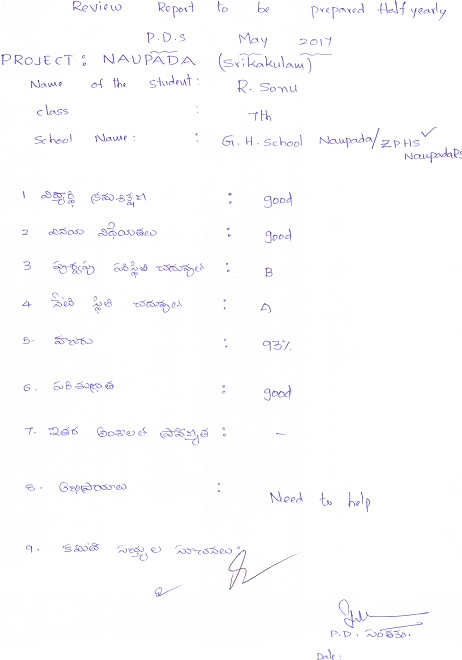 Review Report to be prepared Half yearly
P.D.S May 2017
PROJECT : NAUPADA (Srikakulam)
Name of the Student : R. Sonu
class : 7th
School Name : : G. H. School Naupada/ZPHS ✓
NaupadaRS
1 విద్యార్థి క్రమశిక్షణ : good
2 వినయ విధేయతలు : good
3 పూర్వపు పరిస్థితి చదువులో : B
4 నేటి స్థితి చదువులో : A
5- హాజరు : 93%
6. పరిశుభ్రత : good
7. ఇతర అంశాలలో ప్రావీణ్యత : -
8. అభిప్రాయాలు : Need to help
9. కమిటీ సభ్యుల సూచనలు :
P.D. సంతకం.
Date :